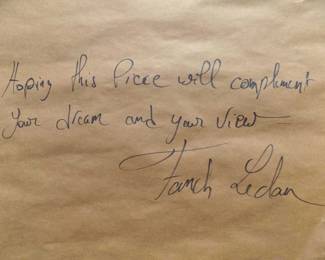 Hoping this Piece will compliment
your dream and your view
Fanch Ledan